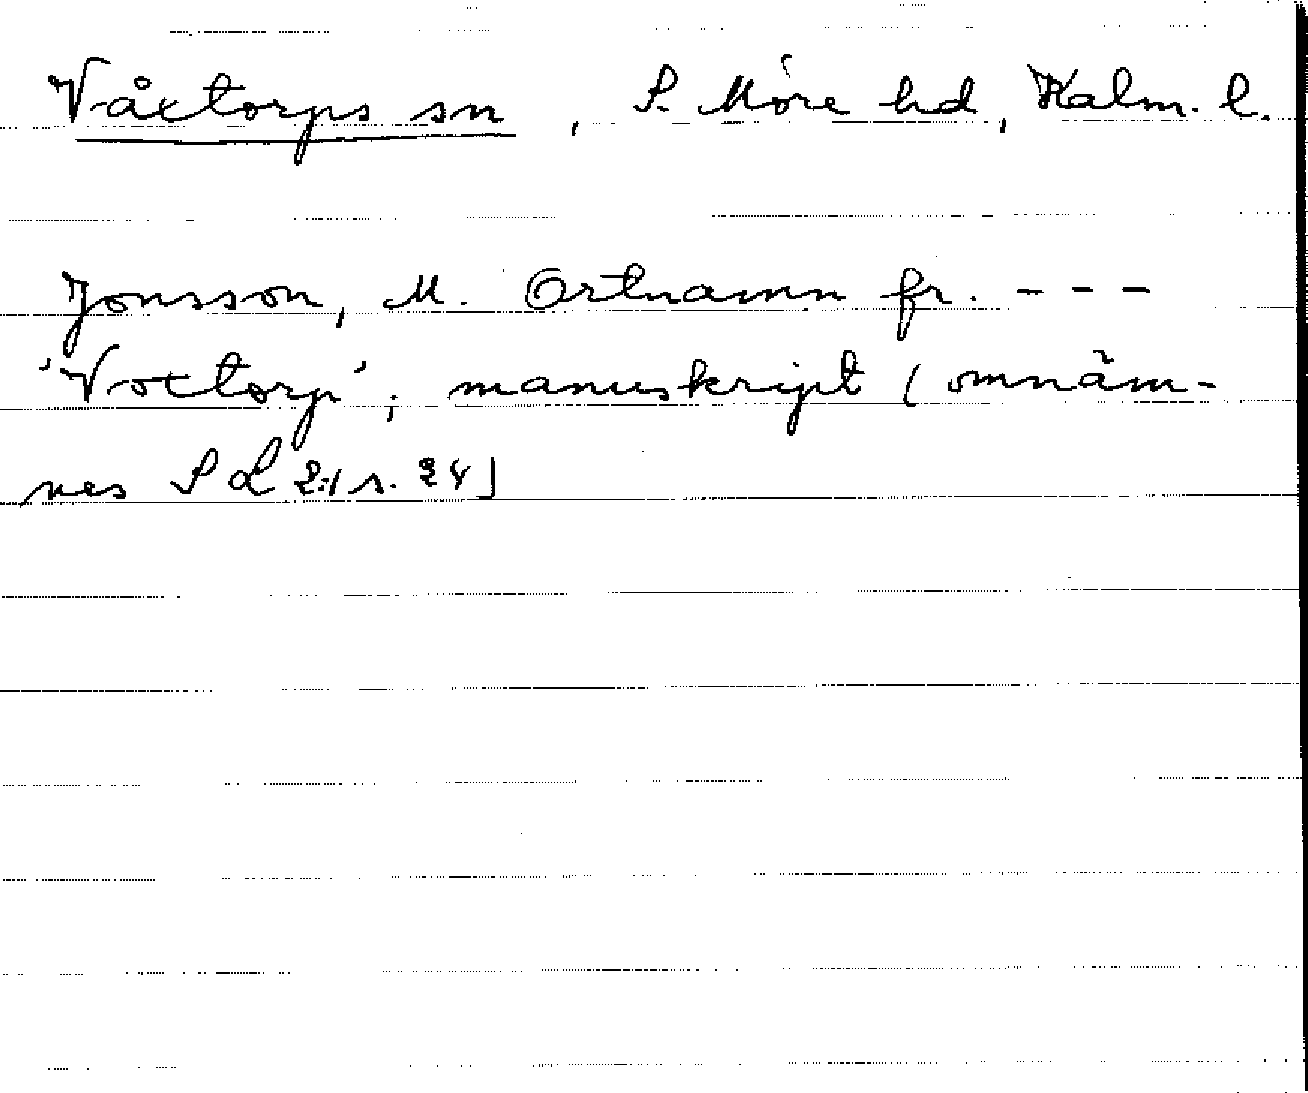 Våxtorps sn, S. Möre hd, Kalm. l.
Jonsson, M. Ortnamn fr. - - -
'Voxtorp'; manuskript (omnäm-
nes SL 2:1 s. 24)